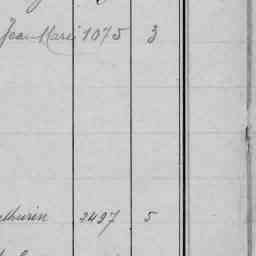 Jean Marie 1075 3
thurin 2497 5